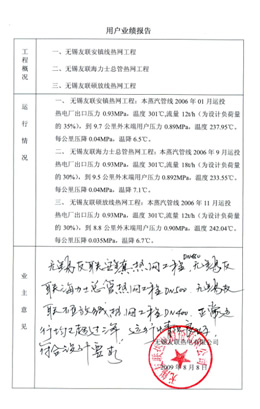 用户业绩报告
工程概况
一、无锡友联安镇线热网工程
二、无锡友联海力士总管热网工程
三、无锡友联硕放线热网工程
运行情况
一、无锡友联安镇热网工程：本蒸汽管线 2006 年 01 月运投
热电厂出口压力 0.93MPa，温度 301℃,流量 12t/h（为设计负荷量
的 35%），到 9.7 公里外末端用户压力 0.89MPa，温度 237.95℃，
每公里压降 0.04MPa，温降 6.5℃。
二、无锡友联海力士总管热网工程：本蒸汽管线 2006 年 9 月运投
热电厂出口压力 0.93MPa，温度 301℃,流量 18t/h（为设计负荷量
的 30%），到 9.5 公里外末端用户压力 0.892MPa，温度 233.55℃，
每公里压降 0.04MPa，温降 7.1℃。
三、无锡友联硕放线热网工程：本蒸汽管线 2006 年 11 月运投
热电厂出口压力 0.93MPa，温度 301℃,流量 12t/h（为设计负荷量
的 30%），到 8.8 公里外末端用户压力 0.90MPa，温度 242.04℃，
每公里压降 0.035MPa，温度 6.7℃。
业主意见
无锡友联安镇热网工程 无锡友
联海力士总管热网工程DN500 无锡友
联硕放线热网工程DN400
符合设计要求
无锡友联热电有限公司
2009 年 8 月 8 日